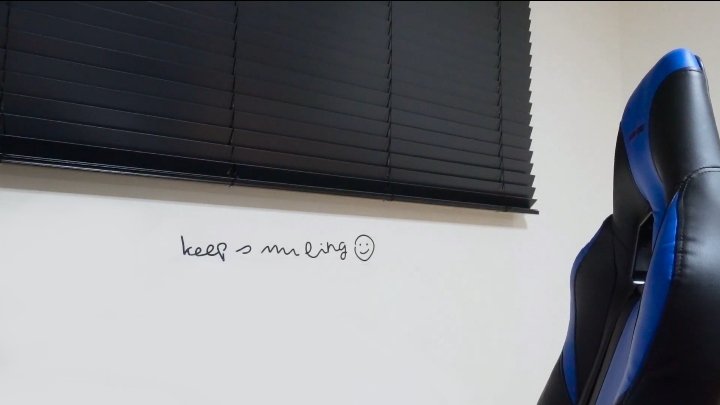 keep smiling ☺